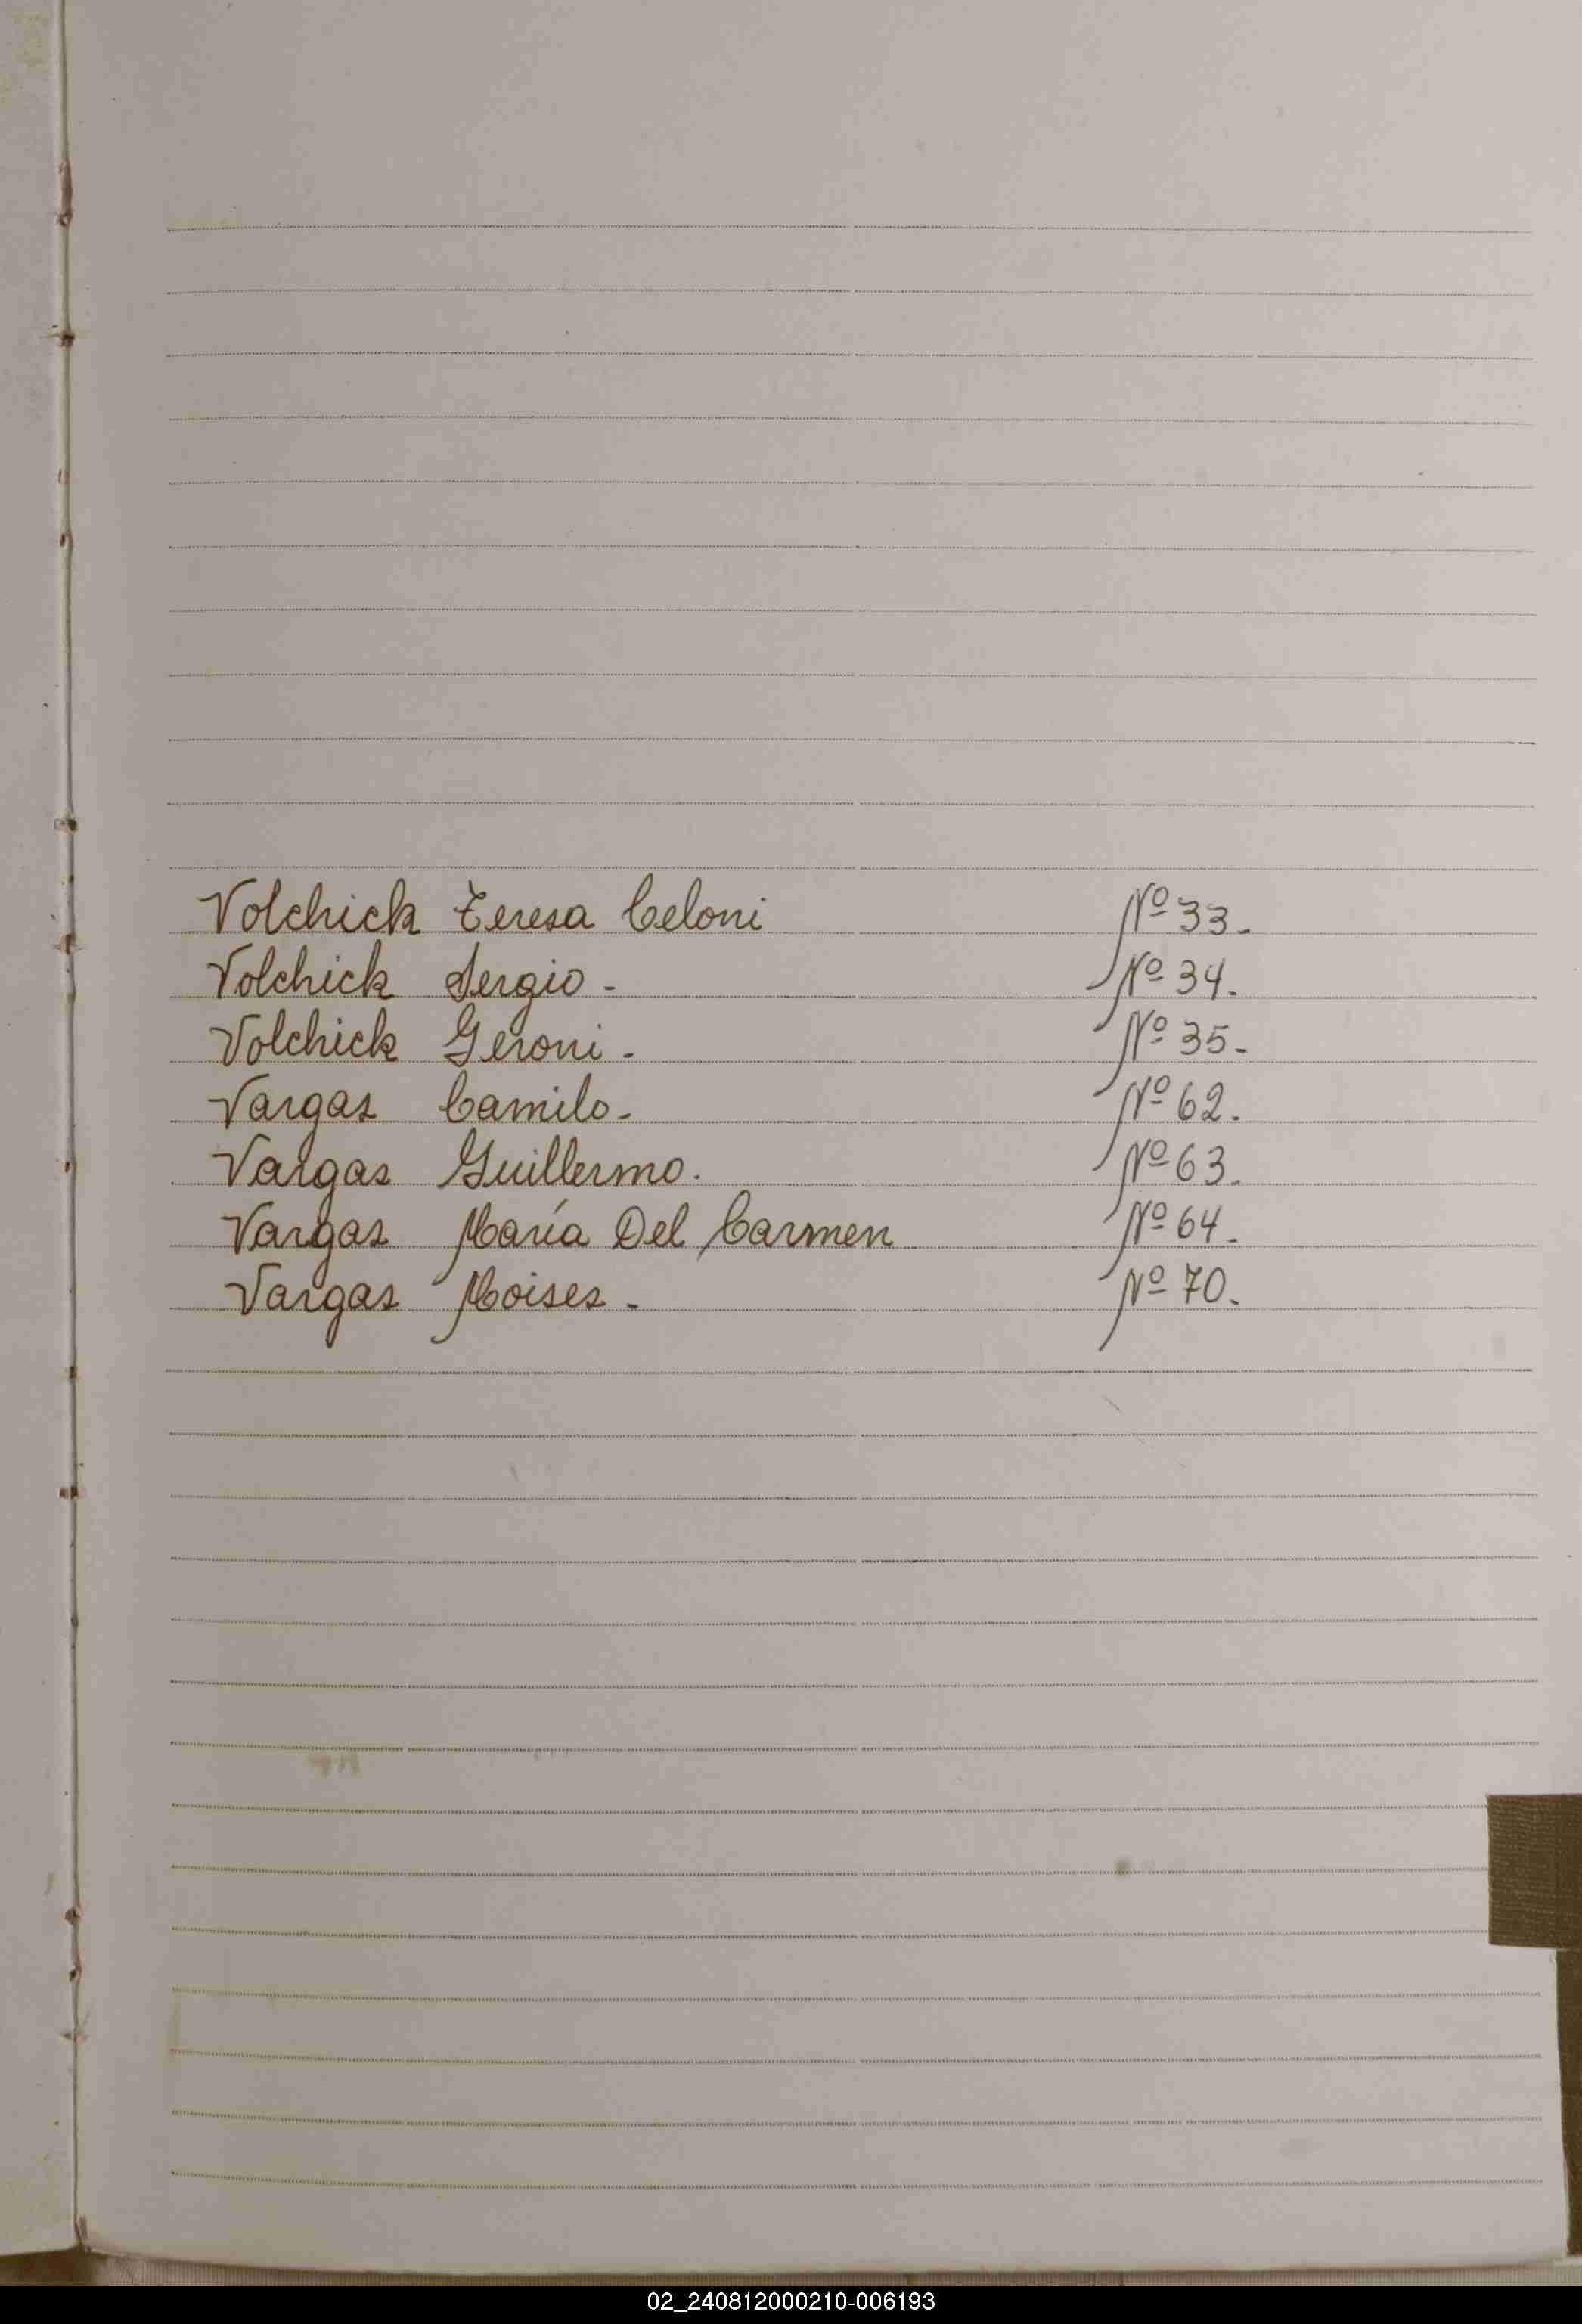 Volchick Teresa Celoni Nº 33.
Volchick Sergio - Nº 34.
Volchick Geroni - Nº 35-
Vargas Camilo - Nº 62.
Vargas Guillermo. Nº 63.
Vargas María Del Carmen Nº 64.
Vargas Moises - Nº 70.
02_240812000210-006193